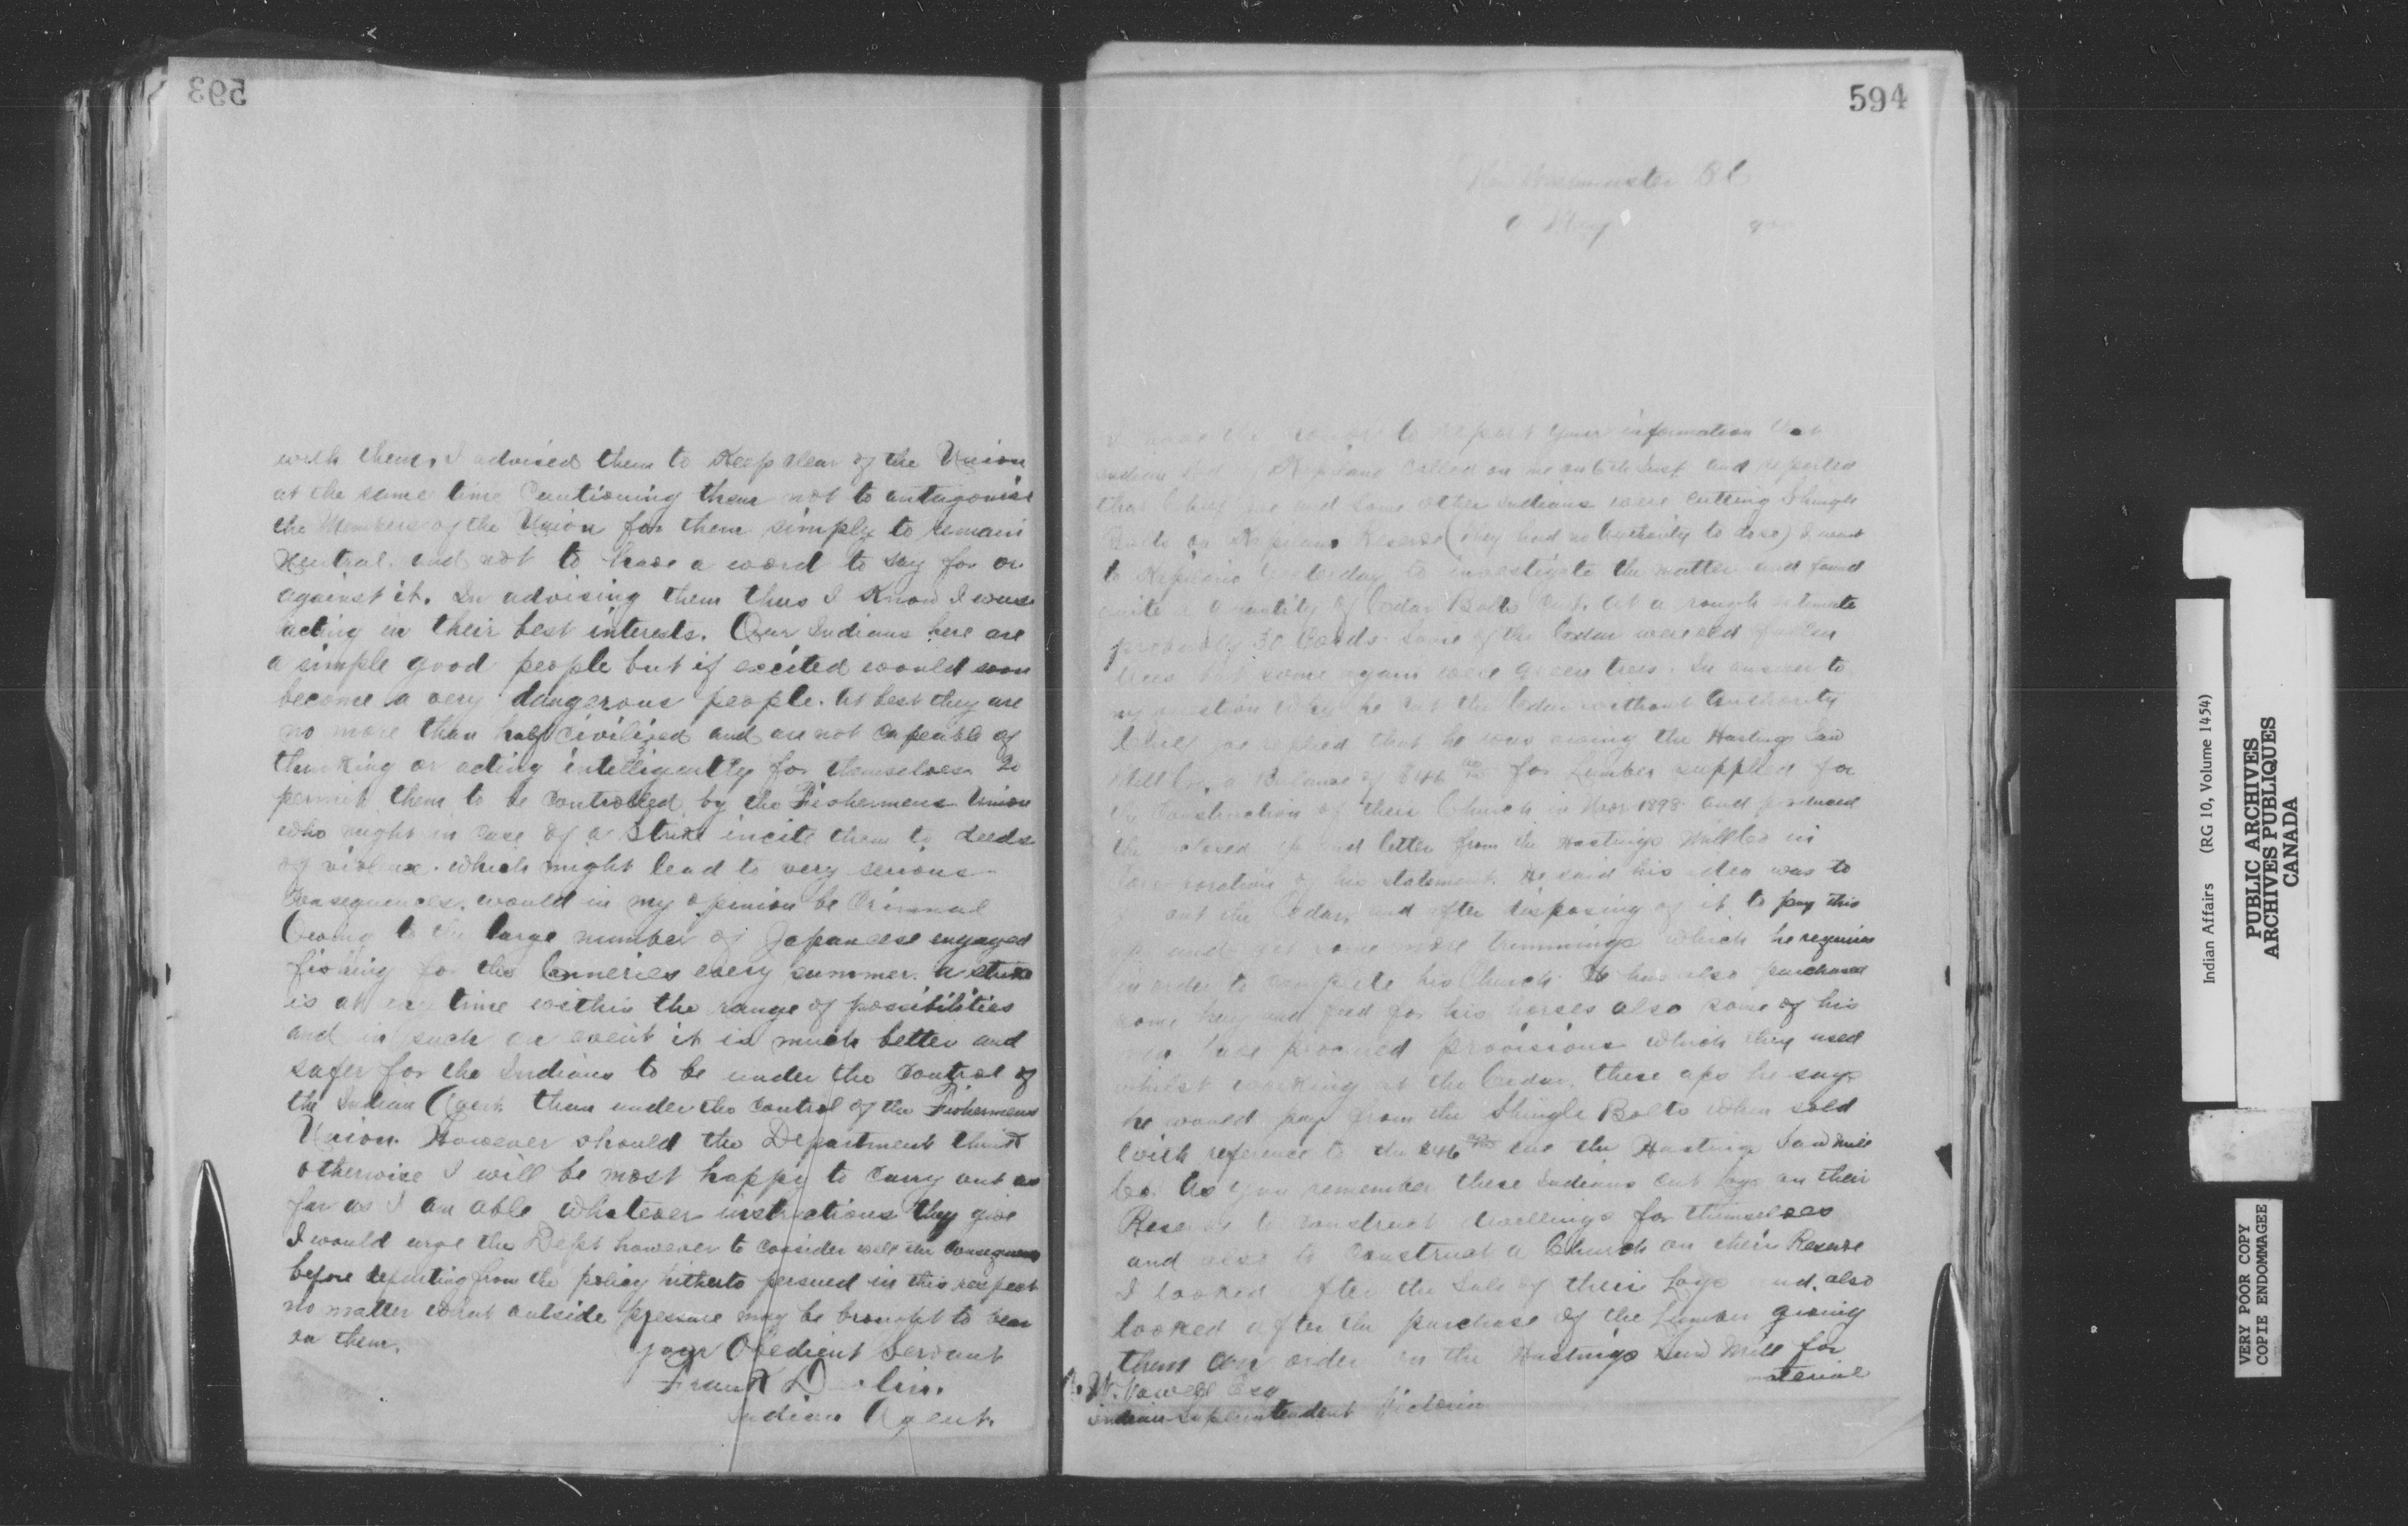 593
with them, I advised them to keep clear of the Union
at the same time Cautioning them not to antagonise
the Members of the Union for them simply to remain
Neutral. and not to have a word to say for or
against it. In advising them thus I Know I was
acting in their best interests. Our Indians here are
a simple good people but if excited would soon
become a very dangerous people. At best they are
no more than half civilized and are not capeable of
thinking or acting intelligently for themselves. To
permit them to be Controlled by the Fishermens Union
who might in case of a Strike incite them to deeds
of violence. which might lead to very serious
Consequences. would in my opinion be Criminal
Owing to the large number of Japanese engaged
fishing for the Canneries every summer. a strike
is at any time within the range of possibilities
and in such an event it is much better and
safer for the Indians to be under the Control of
the Indian Agent than under the Control of the Fishermens
Union. However should the Department think
otherwise I will be most happy to Carry out as
far as I am able whatever instructions they give
I would urge the Dept however to Consider well the Consequences
before departing from the policy hitherto persued in this respect
no matter what outside pressure may be brought to bear
on them.
your Obedient Servant
Frank Devlin.
Indian Agent.
594
New Westminster BC
May
I have the honor to report your information that
Indian of Kapilano Called on me on 6th Inst and reported
that Chief Joe and some other Indians were Cutting Shingle
Bolts on Kapilano Reserve (they had no Authority to doso) I went
to Kapilano yesterday to investigate the matter and found
quite a quantity of Cedar Bolts Cut. At a rough estimate
probably 30 Cords. Some of the Cedar were old fallen
trees but some again were green trees. In answer to
my question why he cut the Cedar without Authority
Chief Joe replied that he was owing the Hastings Saw
Mill Co. a Balance of $46 for Lumber supplied for
the Construction of their Church in Nov 1898 and produced
the enclosed and letter from the Hastings Mill Co in
Corroboration of his statement. He said his idea was to
cut the Cedar, and after disposing of it to pay this
and get some more trimmings which he requires
in order to complete his Church. He has also purchased
some hay and feed for his horses also some of his
men have procured provisions which they used
whilst working at the Cedar. these a/cs he says
he would pay from the Shingle Bolts when sold
With reference to the $46 due the Hastings Sawmill
Co. As you remember these Indians cut Logs on their
Reserve to construct dwellings for themselves
and also to Construct a Church on their Reserve
I looked after the Sale of their Logs and also
looked after the purchase of the Lumber giving
them an order on the Hastings Saw Mill for
material
A. W. Vowell Esq
Indian Superintendent Victoria
Indian Affairs (RG 10, Volume 1454)
PUBLIC ARCHIVES
ARCHIVES PUBLIQUES
CANADA
VERY POOR COPY
COPIE ENDOMMAGEE